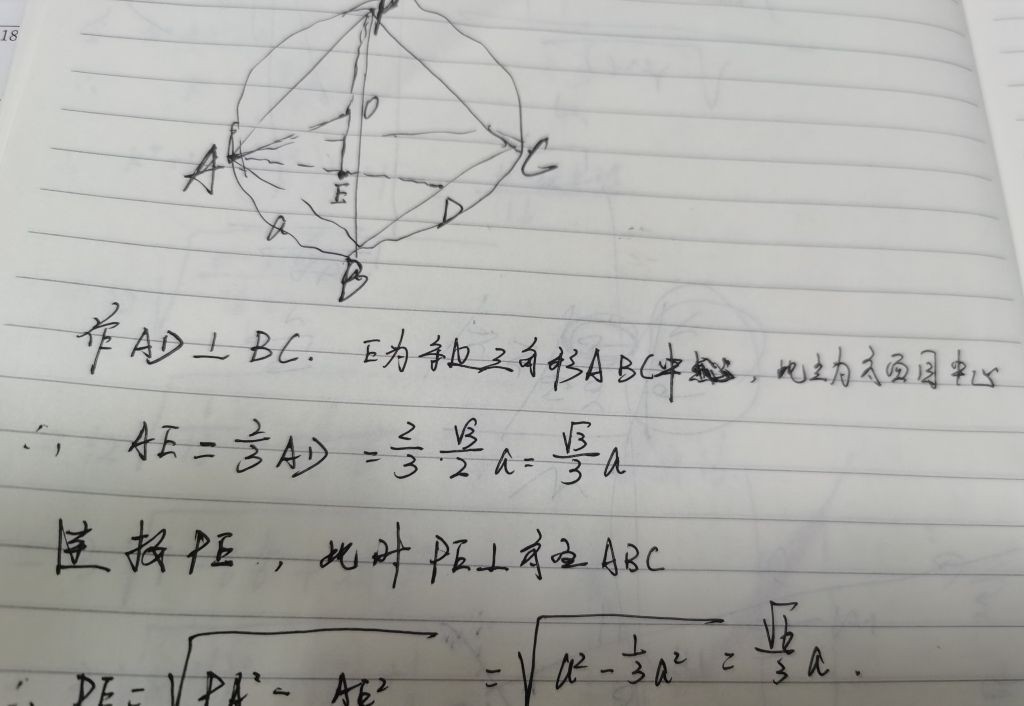 18
P
O
A
C
E
D
a
B
作 AD ⊥ BC. E为等边三角形ABC中心, 此
∴ AE = \frac{2}{3} AD = \frac{2}{3} · \frac{√3}{2} a = \frac{√3}{3} a
连接PE, 此时 PE⊥ ABC
∴ PE = √(PA² - AE²) = √(a² - \frac{1}{3}a²) = \frac{√6}{3} a.